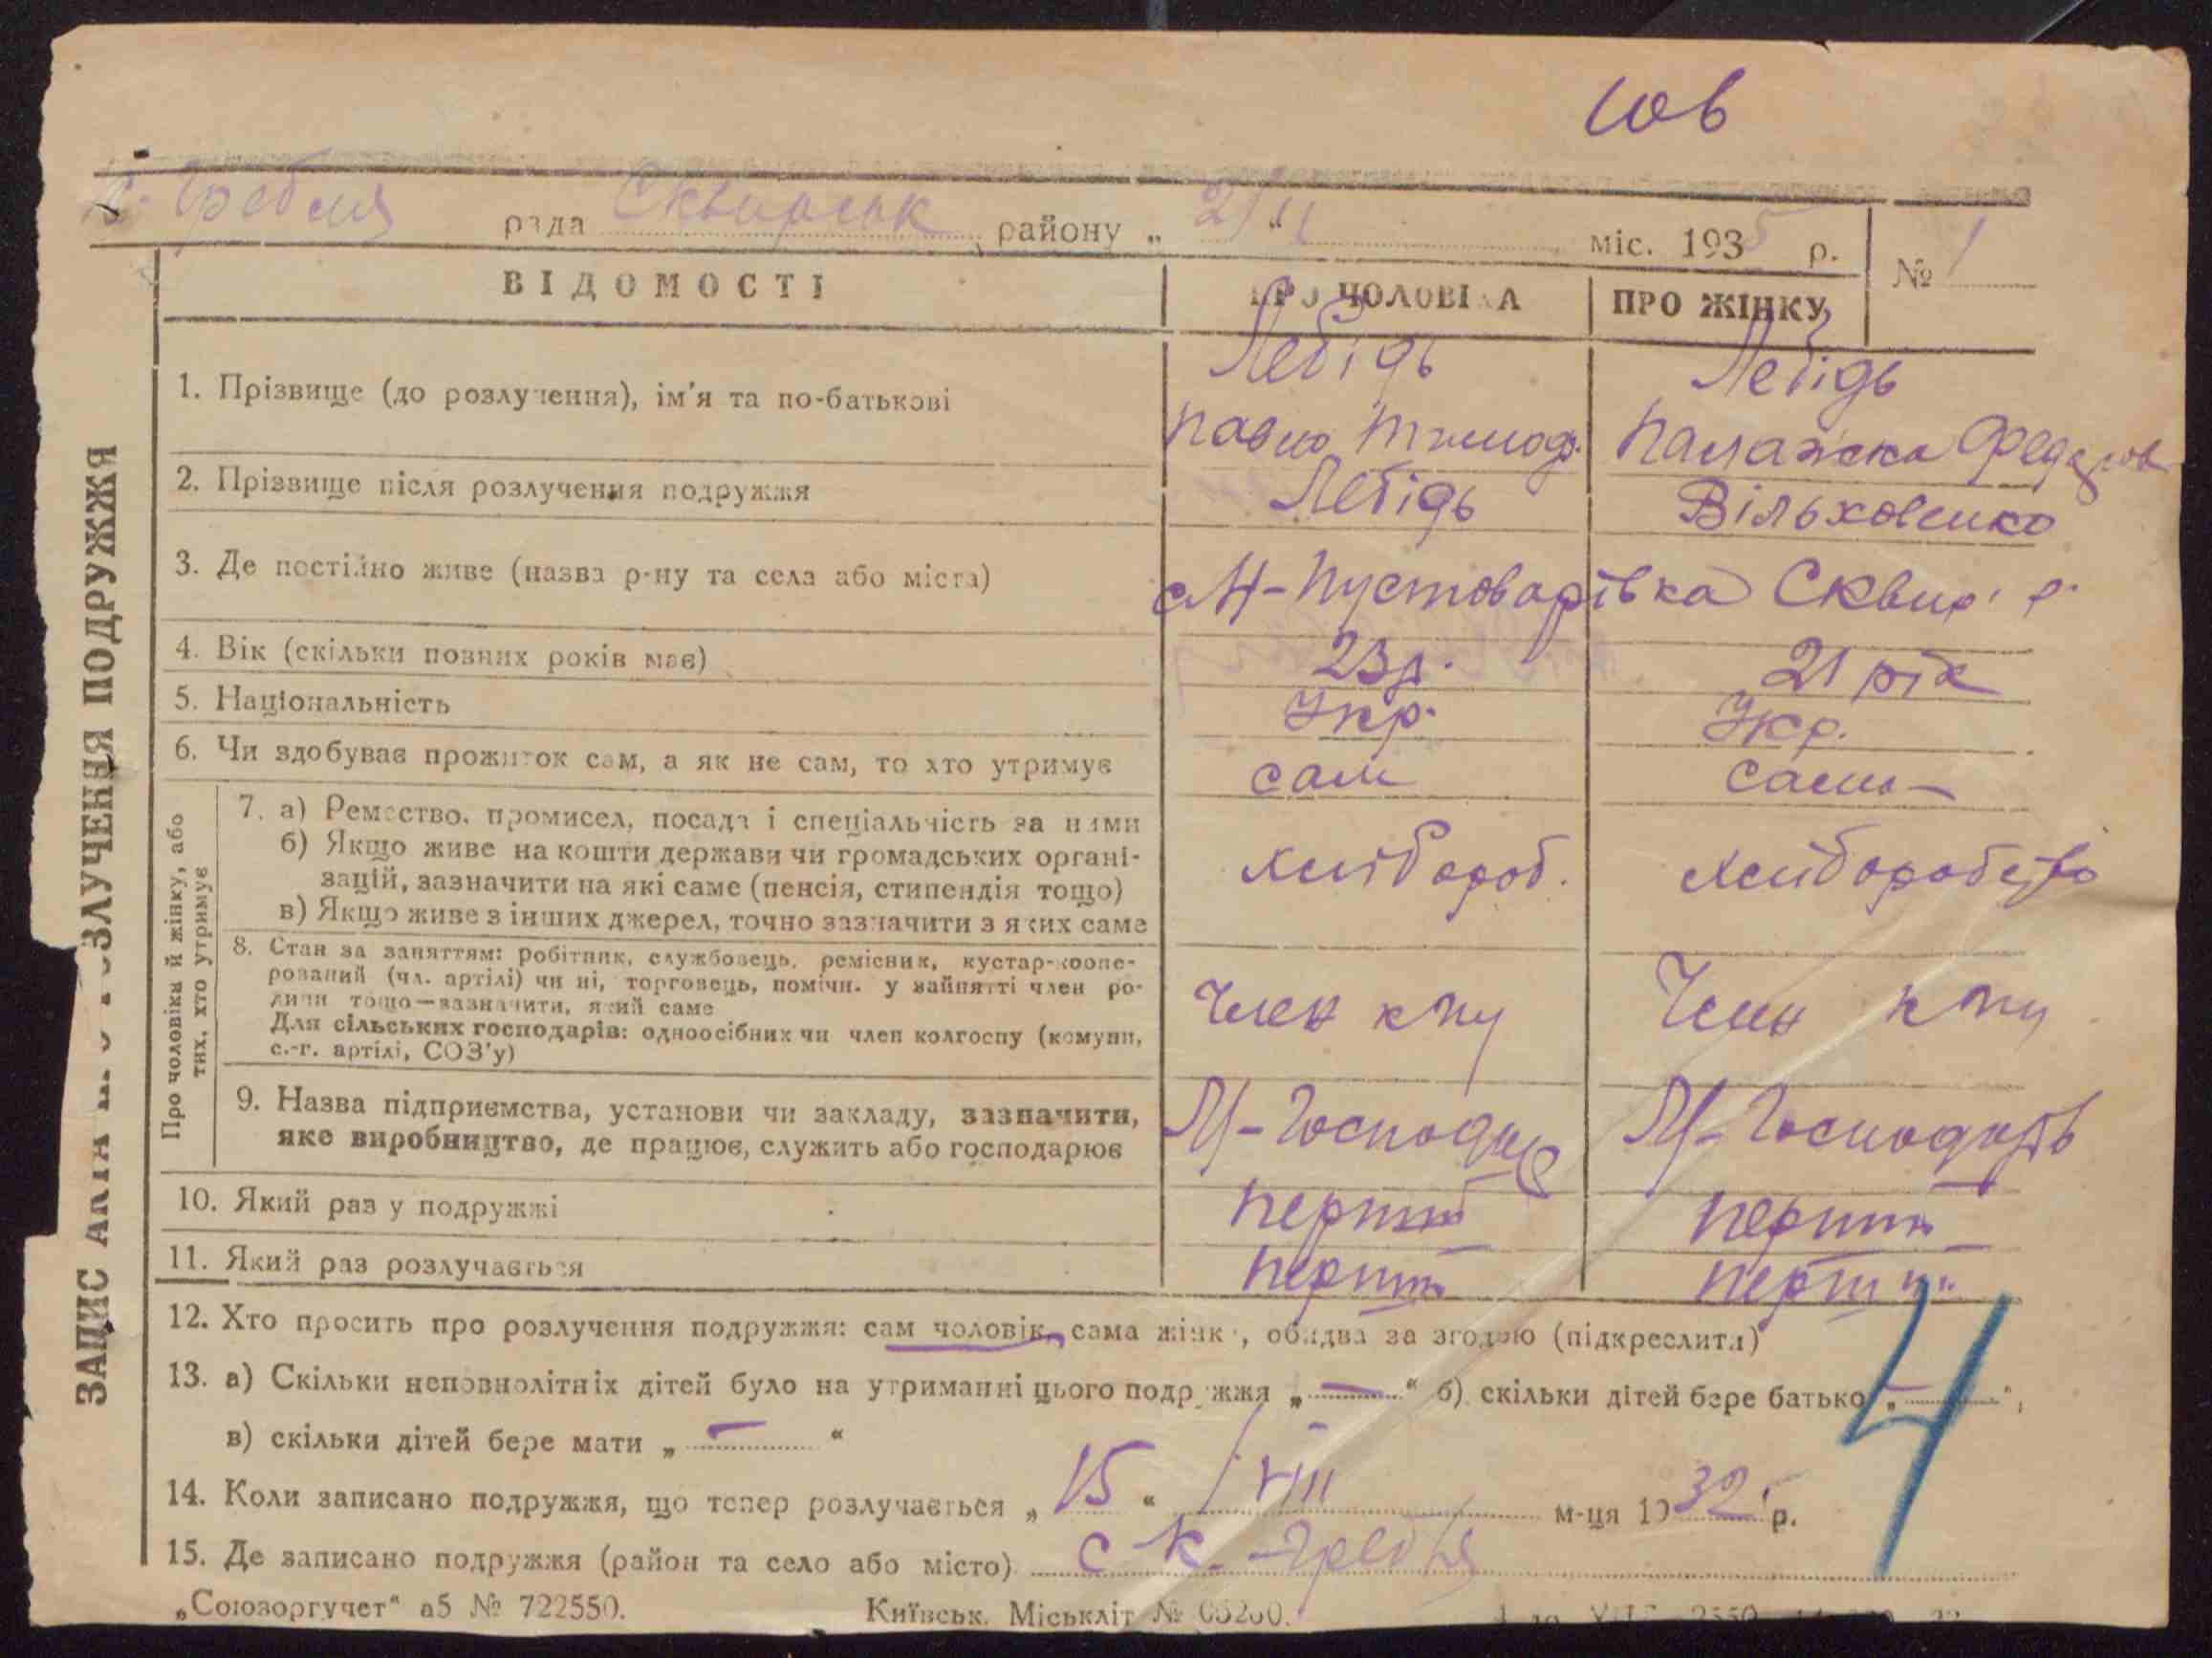 Гребля рада Сквирськ району „ 2/II “ міс. 1935 р. № 1
ЗАПИС АКТА ПРО РОЗЛУЧЕННЯ ПОДРУЖЖЯ
ВІДОМОСТІ ПРО ЧОЛОВІКА ПРО ЖІНКУ
1. Прізвище (до розлучення), ім'я та по-батькові
Лебідь Лебідь
Павло Тимоф. Палажка Федоров
2. Прізвище після розлучення подружжя Лебідь Вільховенко
3. Де постійно живе (назва р-ну та села або міста) с М-Пустоварівка Сквир. р.
4. Вік (скільки повних років має) 23 р. 21 рік
5. Національність Укр. Укр.
6. Чи здобуває прожиток сам, а як не сам, то хто утримує сам сама
Про чоловіка й жінку, або
тих, хто утримує
7. а) Ремество, промисел, посада і спеціальність за ними
б) Якщо живе на кошти держави чи громадських органі-
зацій, зазначити на які саме (пенсія, стипендія тощо)
в) Якщо живе з інших джерел, точно зазначити з яких саме
хлібороб. хлібороб
8. Стан за заняттям: робітник, службовець, ремісник, кустар-коопе-
рований (чл. артілі) чи ні, торговець, помічн. у зайнятті член ро-
дини тощо—зазначити, який саме
Для сільських господарів: одноосібних чи член колгоспу (комуни,
с.-г. артілі, СОЗ'у)
Член к-пу Член к-пу
9. Назва підприємства, установи чи закладу, зазначити,
яке виробництво, де працює, служить або господарює
10. Який раз у подружжі перший перший
11. Який раз розлучається перший перший
12. Хто просить про розлучення подружжя: сам чоловік, сама жінка, обидва за згодою (підкреслити)
13. а) Скільки неповнолітніх дітей було на утриманні цього подружжя „ — “ б) скільки дітей бере батько „ — “,
в) скільки дітей бере мати „ — “
14. Коли записано подружжя, що тепер розлучається „ 15 “ VIII м-ця 1932 р.
15. Де записано подружжя (район та село або місто) с К.-Гребля
4
„Союзоргучет“ а5 № 722550. Київськ. Міськліт №